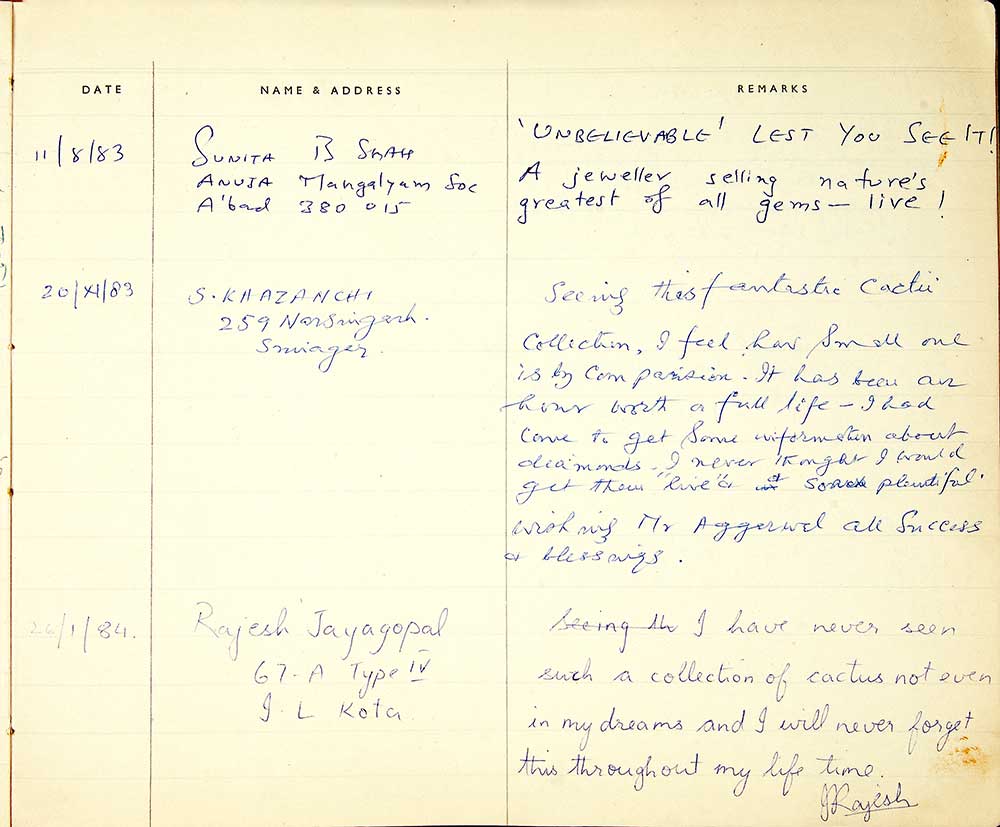 DATE NAME & ADDRESS REMARKS
11/8/83
SUNITA B SHAH
ANUJA Mangalyam Soc
A'bad 380 015
'UNBELIEVABLE' LEST YOU SEE IT!
A jeweller selling nature's
greatest of all gems — live!
20/XI/83
S. KHAZANCHI
259 Narsingarh.
Srinagar.
Seeing this fantastic Cactii
Collection, I feel how small one
is by Comparision. It has been an
hour worth a full life – I had
Come to get some information about
diamonds. I never thought I would
get them "live" & plentiful
wishing Mr Aggarwal all Success
& blessings.
/1/84.
Rajesh Jayagopal
67-A Type IV
I. L Kota.
Seeing th I have never seen
such a collection of cactus not even
in my dreams and I will never forget
this throughout my life time.
JRajesh